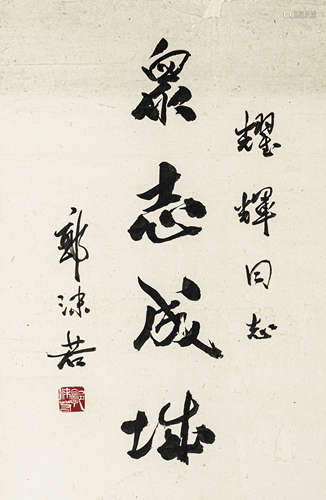 耀辉同志
众志成城
郭沫若